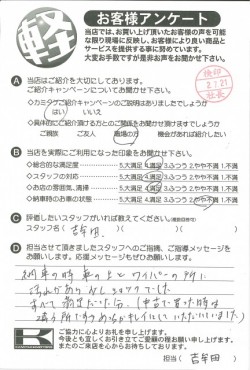 軽
お客様アンケート
当店では、お買い上げ頂いたお客様の声を可能
な限り現場に反映し、お客様により良い商品と
サービスを提供する事に努めています。
大変お手数ですが是非お声をお聞かせ下さい。
検印
2.7.21
社長
A 当店はご紹介を大切にしてあります。
ご紹介キャンペーンについてお聞かせ下さい。
◇カミタケご紹介キャンペーンのご説明はありましたでしょうか
はい いいえ
◇具体的にご紹介頂ける方とのご関係をお聞かせ頂けますでしょうか
ご親族 ご友人 職場の方 機会があれば紹介したい
B 当店を実際にご利用になった印象をお聞かせ下さい。
◇総合的な満足度 5.大満足 4.満足 3.ふつう 2.やや不満 1.不満
◇スタッフの対応 5.大満足 4.満足 3.ふつう 2.やや不満 1.不満
◇お店の雰囲気、清掃 5.大満足 4.満足 3.ふつう 2.やや不満 1.不満
◇納車時のお車の状態 5.大満足 4.満足 3.ふつう 2.やや不満 1.不満
C 評価したいスタッフがいれば教えてください。(複数回答可)
スタッフ名( 吉牟田 )
D 担当させて頂きましたスタッフへのご指摘、ご指導メッセージを
お願いします。応援メッセージもぜひお願いします。
納車の時 車の上と ワイパーの所に
汚れがあり 少しショックでした
すべて 満足だった分。(中古で買った時は
違う所ですがその時はキレイにしていただいていました)
K
ご協力に心よりお礼を申し上げます。
今後とも宜しくお引き立てご愛顧の程お願い申し上げます。
またのご来店を心からお待ちしております。
担当( 吉牟田 )